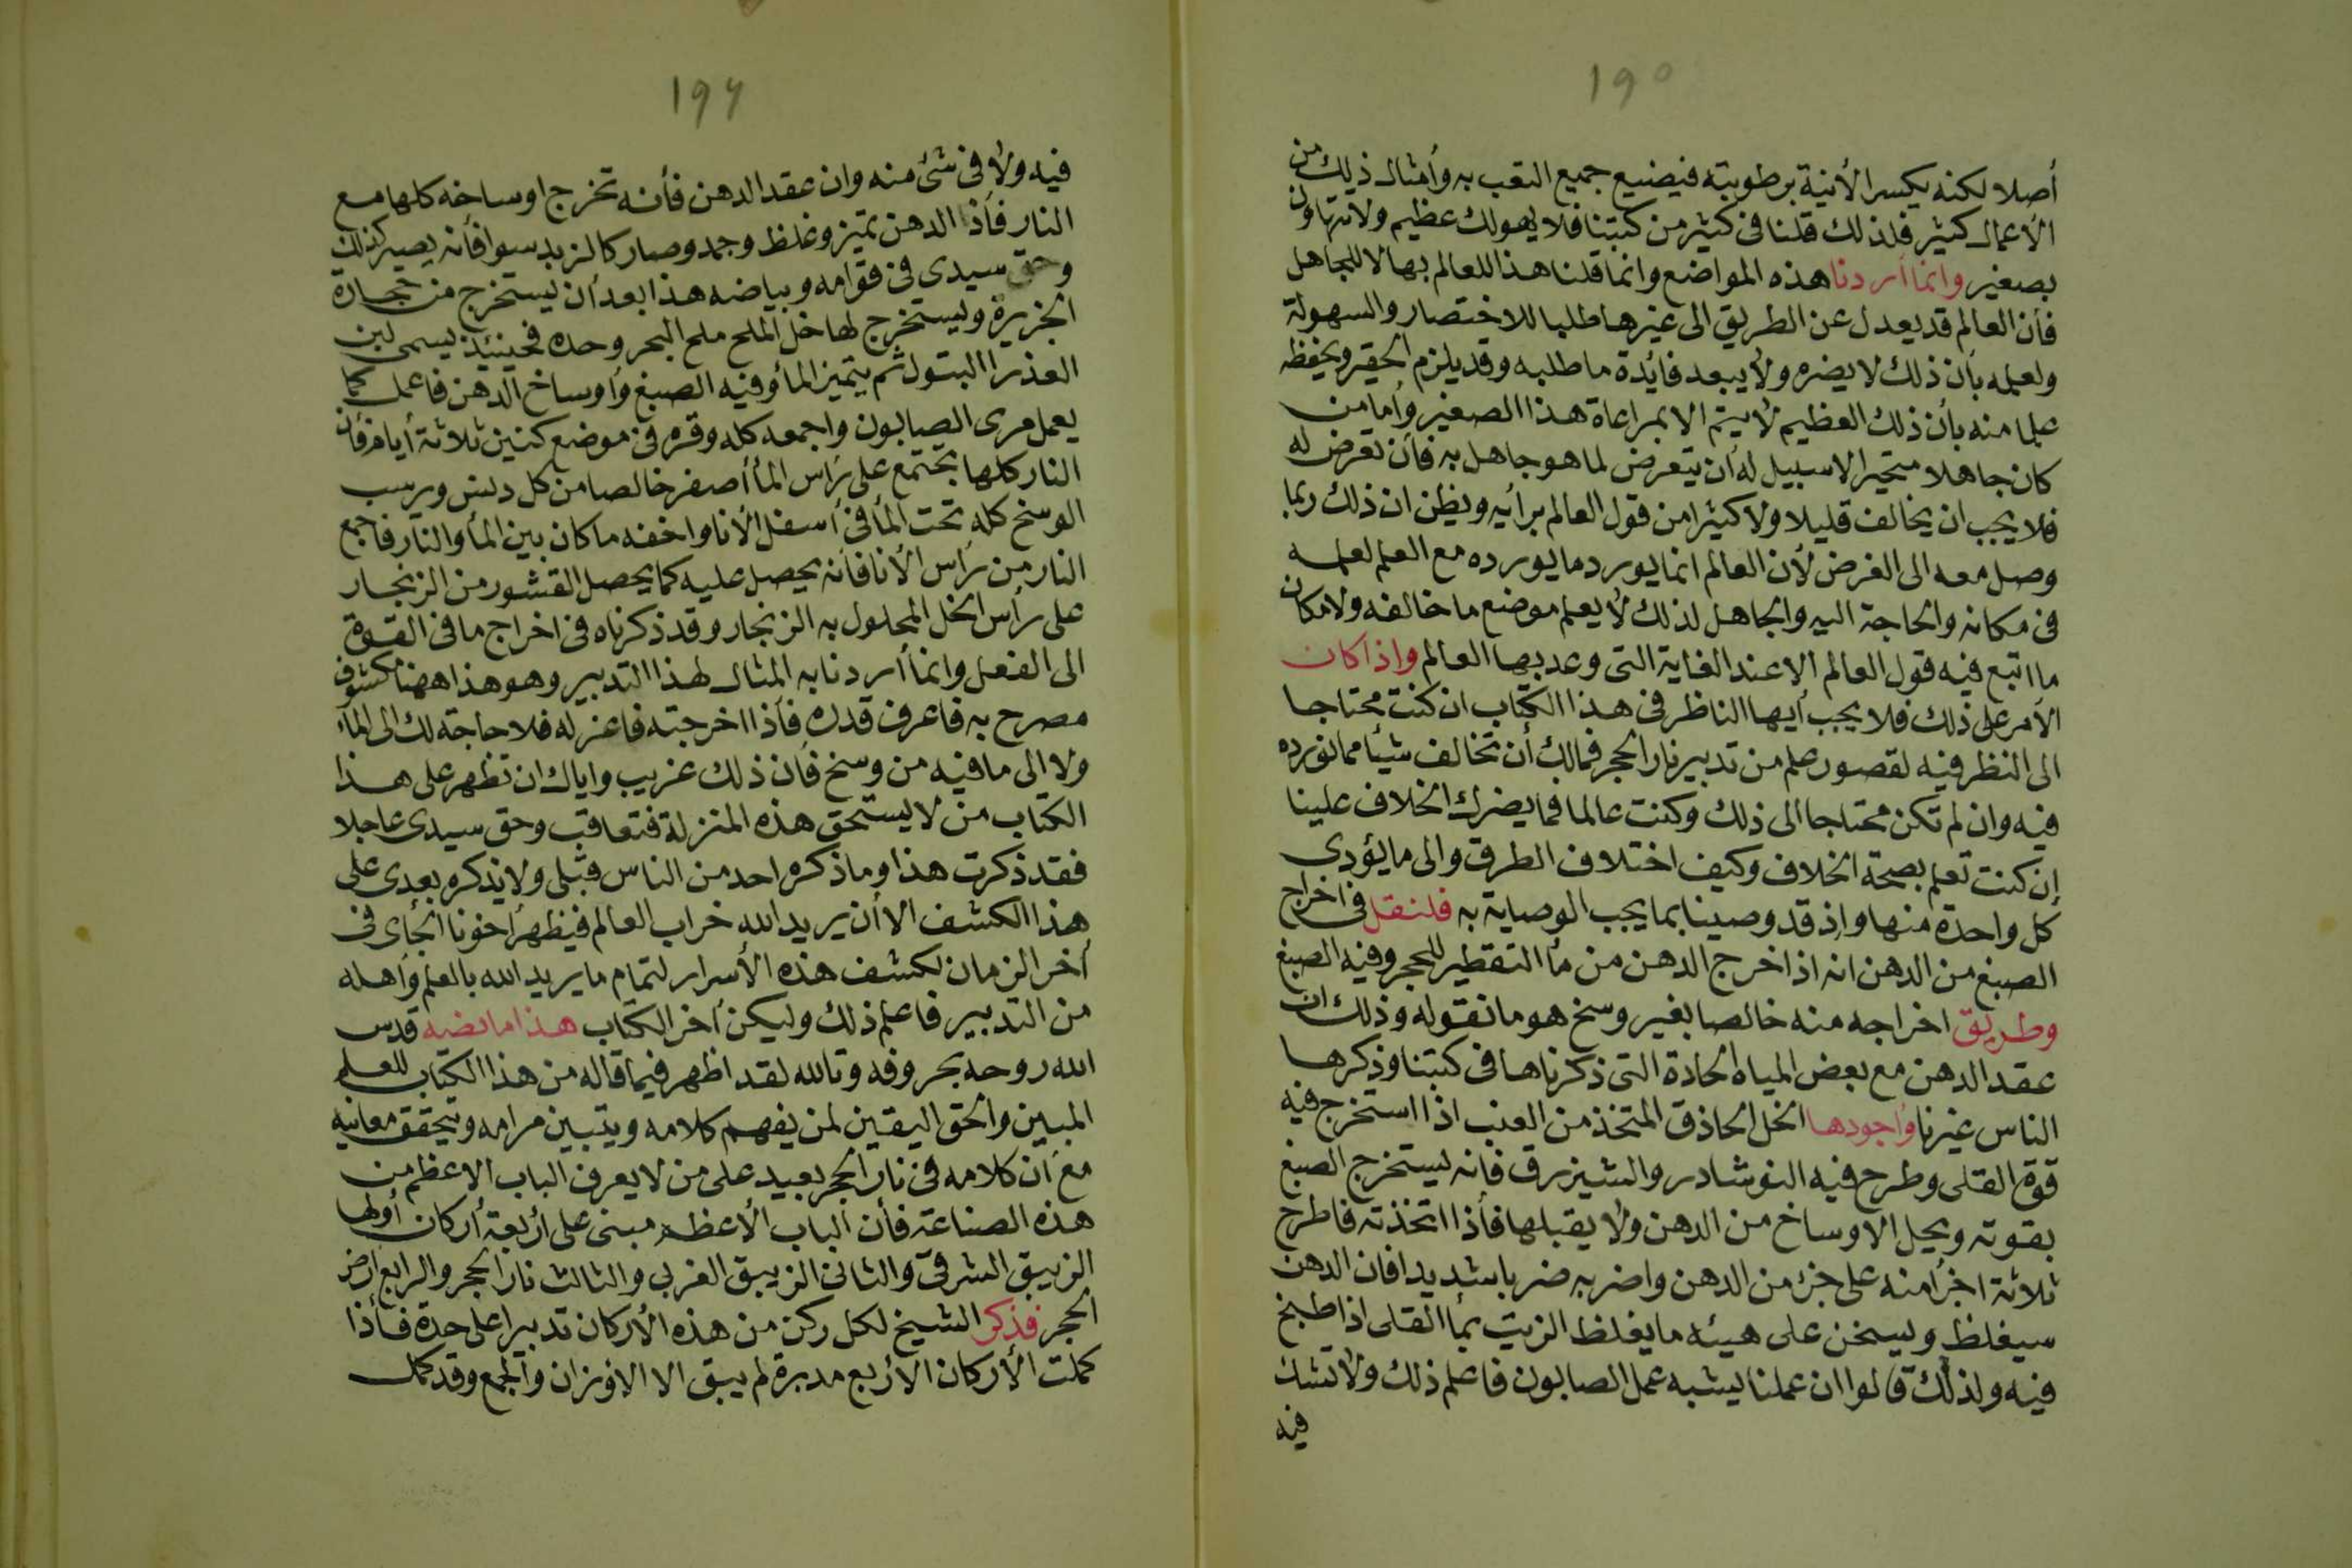 ١٩٥
أصلا لكنه يكسر الأنية برطوبته فيضيع جميع التعب به وأمثال ذلك من
الأعمال كثير فلذلك قلنا فى كثير من كتبنا فلا يهولك عظيم ولا تتهاون
بصغير وانما أردنا هذه المواضع وانما قلنا هذا للعالم بها لا للجاهل
فأن العالم قد يعدل عن الطريق الى غيرها طلبا للاختصار والسهولة
ولعلمه بأن ذلك لا يضره ولا يبعد فائدة ما طلبه وقد يلزم الحقير ويحفظه
علما منه بأن ذلك العظيم لا يتم الا بمراعاة هذا الصغير وأما من
كان جاهلا متحيرا لا سبيل له أن يتعرض لما هو جاهل به فأن تعرض له
فلا يجب ان يخالف قليلا ولا كثيرا من قول العالم برأيه ويظن ان ذلك ربما
وصل معه الى الغرض لأن العالم انما يورد ما يورده مع العلم لعلمه
فى مكانه والحاجة اليه والجاهل لذلك لا يعلم موضع ما خالفه ولا مكان
ما اتبع فيه قول العالم الا عند الغاية التى وعد بها العالم واذا كان
الأمر على ذلك فلا يجب أيها الناظر فى هذا الكتاب ان كنت محتاجا
الى النظر فيه لقصور علم من تدبير نار الحجر فمالك أن تخالف شيأ مما نورده
فيه وان لم تكن محتاجا الى ذلك وكنت عالما فما يضرك الخلاف علينا
إن كنت تعلم بصحة الخلاف وكيف اختلاف الطرق والى ما يؤدى
كل واحدة منها وإذ قد وصينا بما يجب الوصاية به فلنقل فى اخراج
الصبغ من الدهن انه اذا خرج الدهن من مأ التقطير للحجر وفيه الصبغ
وطريق اخراجه منه خالصا بغير وسخ هو ما نقوله وذلك ان
عقد الدهن مع بعض المياه الحادة التى ذكرناها فى كتبنا وذكرها
الناس غيرنا وأجودها الخل الحاذق المتخذ من العنب اذا استخرج فيه
قوة القلى وطرح فيه النوشادر والشيزرق فانه يستخرج الصبغ
بقوته ويحل الاوساخ من الدهن ولا يقبلها فأذا اتخذته فاطرح
ثلاثة اجزأ منه على جزء من الدهن واضربه ضربا شديدا فان الدهن
سيغلظ ويسخن على هيئه ما يغلظ الزيت بمأ القلى اذا طبخ
فيه ولذلك قالوا ان عملنا يشبه عمل الصابون فاعلم ذلك ولا تشك
فيه
١٩٦
فيه ولا فى شئ منه وان عقد الدهن فأنه تخرج اوساخه كلها مع
النار فأذا الدهن تميز وغلظ وجمد وصار كالزبد سوا فأنه يصير كذلك
وحق سيدى فى قوامه وبياضه هذا بعد أن يستخرج من حجارة
الجزيرة ويستخرج لها خل الملح ملح البحر وحده فحينئذ يسمى لبن
العذرا البتول ثم يتميز المأ وفيه الصبغ وأوساخ الدهن فاعمل كما
يعمل مرى الصابون واجمعه كله وقره فى موضع كنين ثلاثة أيام فأن
النار كلها تجتمع على رأس المأ أصفر خالصا من كل دنس ويرسب
الوسخ كله تحت المأ فى أسفل الأنا واخفه ما كان بين المأ والنار فاجمع
النار من رأس الأنا فأنه يحصل عليه كما يحصل القشور من الزنجار
على رأس الخل المحلول به الزنجار وقد ذكرناه فى اخراج ما فى القوة
الى الفعل وانما أردنا به المثال لهذا التدبير وهو هذا ههنا مكشوف
مصرح به فاعرف قدره فأذا اخرجته فاعزله فلا حاجة لك الى المأ
ولا الى ما فيه من وسخ فأن ذلك غريب واياك ان تظهر على هذا
الكتاب من لا يستحق هذه المنزلة فتعاقب وحق سيدى عاجلا
فقد ذكرت هذا وما ذكره احد من الناس قبلى ولا يذكره بعدى على
هذا الكشف الا أن يريد الله خراب العالم فيظهر أخونا الجأى فى
أخر الزمان لكشف هذه الأسرار لتمام ما يريد الله بالعلم وأهله
من التدبير فاعلم ذلك وليكن أخر الكتاب هذا ما نصه قدس
الله روحه بحروفه وتالله لقد اظهر فيما قاله من هذا الكتاب للعلم
المبين والحق اليقين لمن يفهم كلامه ويتبين مرامه ويتحقق معانيه
مع أن كلامه فى نار الحجر بعيد على من لا يعرف الباب الاعظم من
هذه الصناعة فأن الباب الأعظم مبنى على أربعة أركان أولها
الزيبق الشرقى والثانى الزيبق الغربى والثالث نار الحجر والرابع أرض
الحجر فذكر الشيخ لكل ركن من هذه الأركان تدبيرا على حدة فأذا
كملت الأركان الأربع مدبرة لم يبق الا الاوزان والجمع وقد كمل